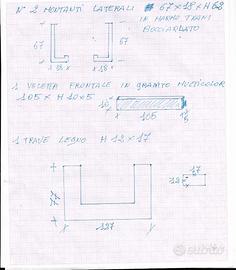 N° 2 MONTANTI LATERALI 67×18×H 62
IN MARMO TRANI
BOCCIARDATO
67
67
18
18
1 VELETTA FRONTALE IN GRANITO MULTICOLOR
105 × H 10×5
10
105
1 TRAVE LEGNO H 12×17
17
12
77
127
subito